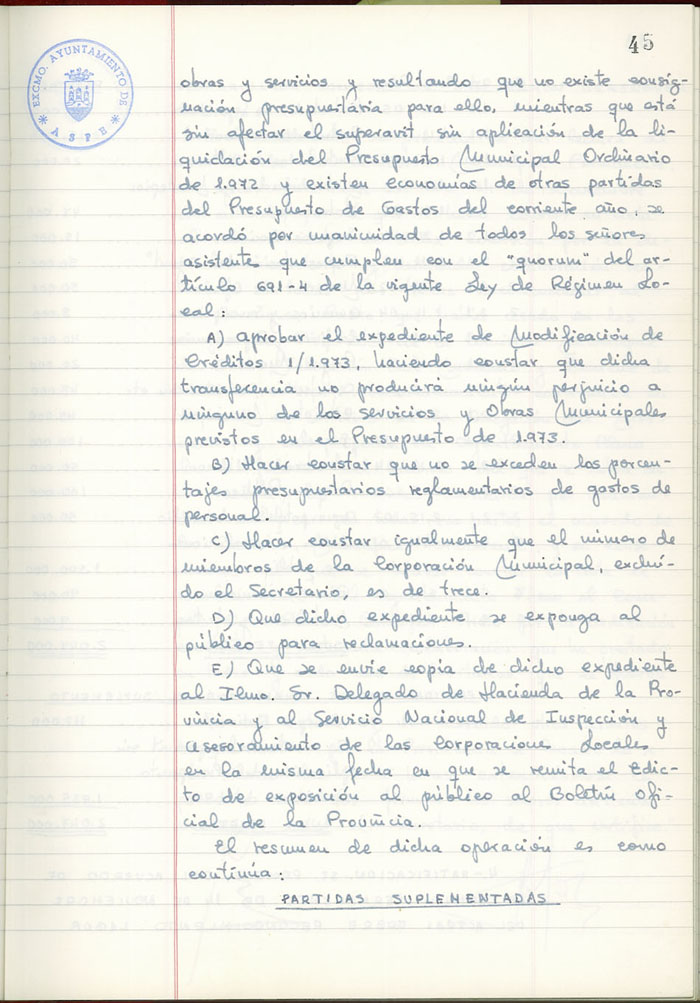 45
EXCMO. AYUNTAMIENTO DE
* ASPE *
obras y servicios y resultando que no existe consig-
nación presupuestaria para ello, mientras que está
sin afectar el superavit sin aplicación de la li-
quidación del Presupuesto Municipal Ordinario
de 1.972 y existen economías de otras partidas
del Presupuesto de Gastos del corriente año, se
acordó por unanimidad de todos los señores
asistente que cumplen con el "quorum" del ar-
tículo 691-4 de la vigente Ley de Régimen Lo-
cal:
A) Aprobar el expediente de Modificación de
Créditos 1/1.973, haciendo constar que dicha
transferencia no producirá ningún perjuicio a
ninguno de los servicios y Obras Municipales
previstos en el Presupuesto de 1.973.
B) Hacer constar que no se exceden los porcen-
tajes presupuestarios reglamentarios de gastos de
personal.
C) Hacer constar igualmente que el número de
miembros de la Corporación Municipal, exclui-
do el Secretario, es de trece.
D) Que dicho expediente se exponga al
público para reclamaciones.
E) Que se envíe copia de dicho expediente
al Ilmo. Sr. Delegado de Hacienda de la Pro-
vincia y al Servicio Nacional de Inspección y
Asesoramiento de las Corporaciones Locales
en la misma fecha en que se remita el Edic-
to de exposición al público al Boletín Ofi-
cial de la Provincia.
El resumen de dicha operación es como
continúa:
PARTIDAS SUPLEMENTADAS